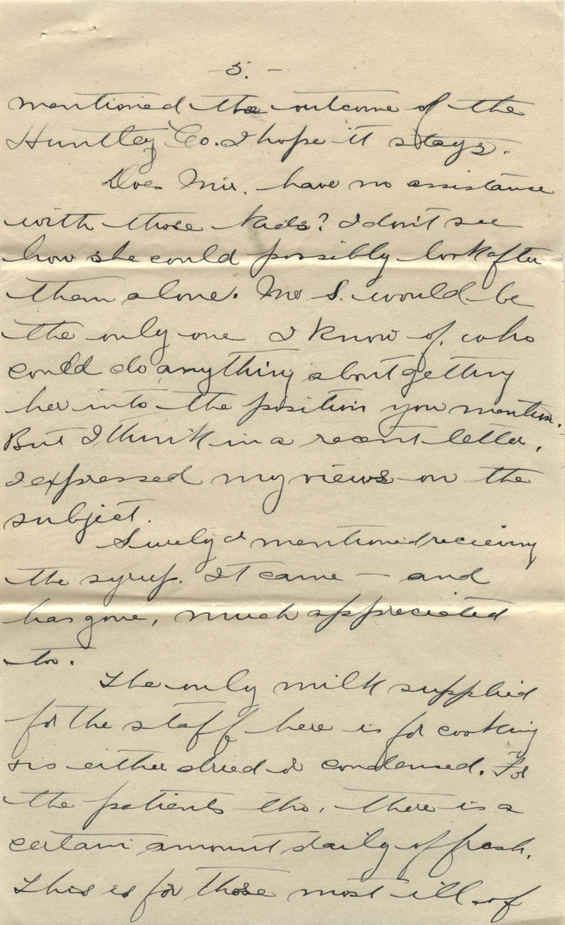 5. -
mentioned the outcome of the
Huntley Co. I hope it stays.
Does Mrs. have no assistance
with those kids? I don't see
how she could possibly look after
them alone. Mr S. would be
the only one I know of, who
could do anything about getting
her into the position you mention.
But I think in a recent letter,
I expressed my views on the
subject.
Surely I mentioned recieving
the syrup. It came - and
has gone, much appreciated
to.
The only milk supplied
for the staff here is for cooking
is either dried or condensed. For
the patients tho, there is a
certain amount daily of fresh.
This is for those most ill of